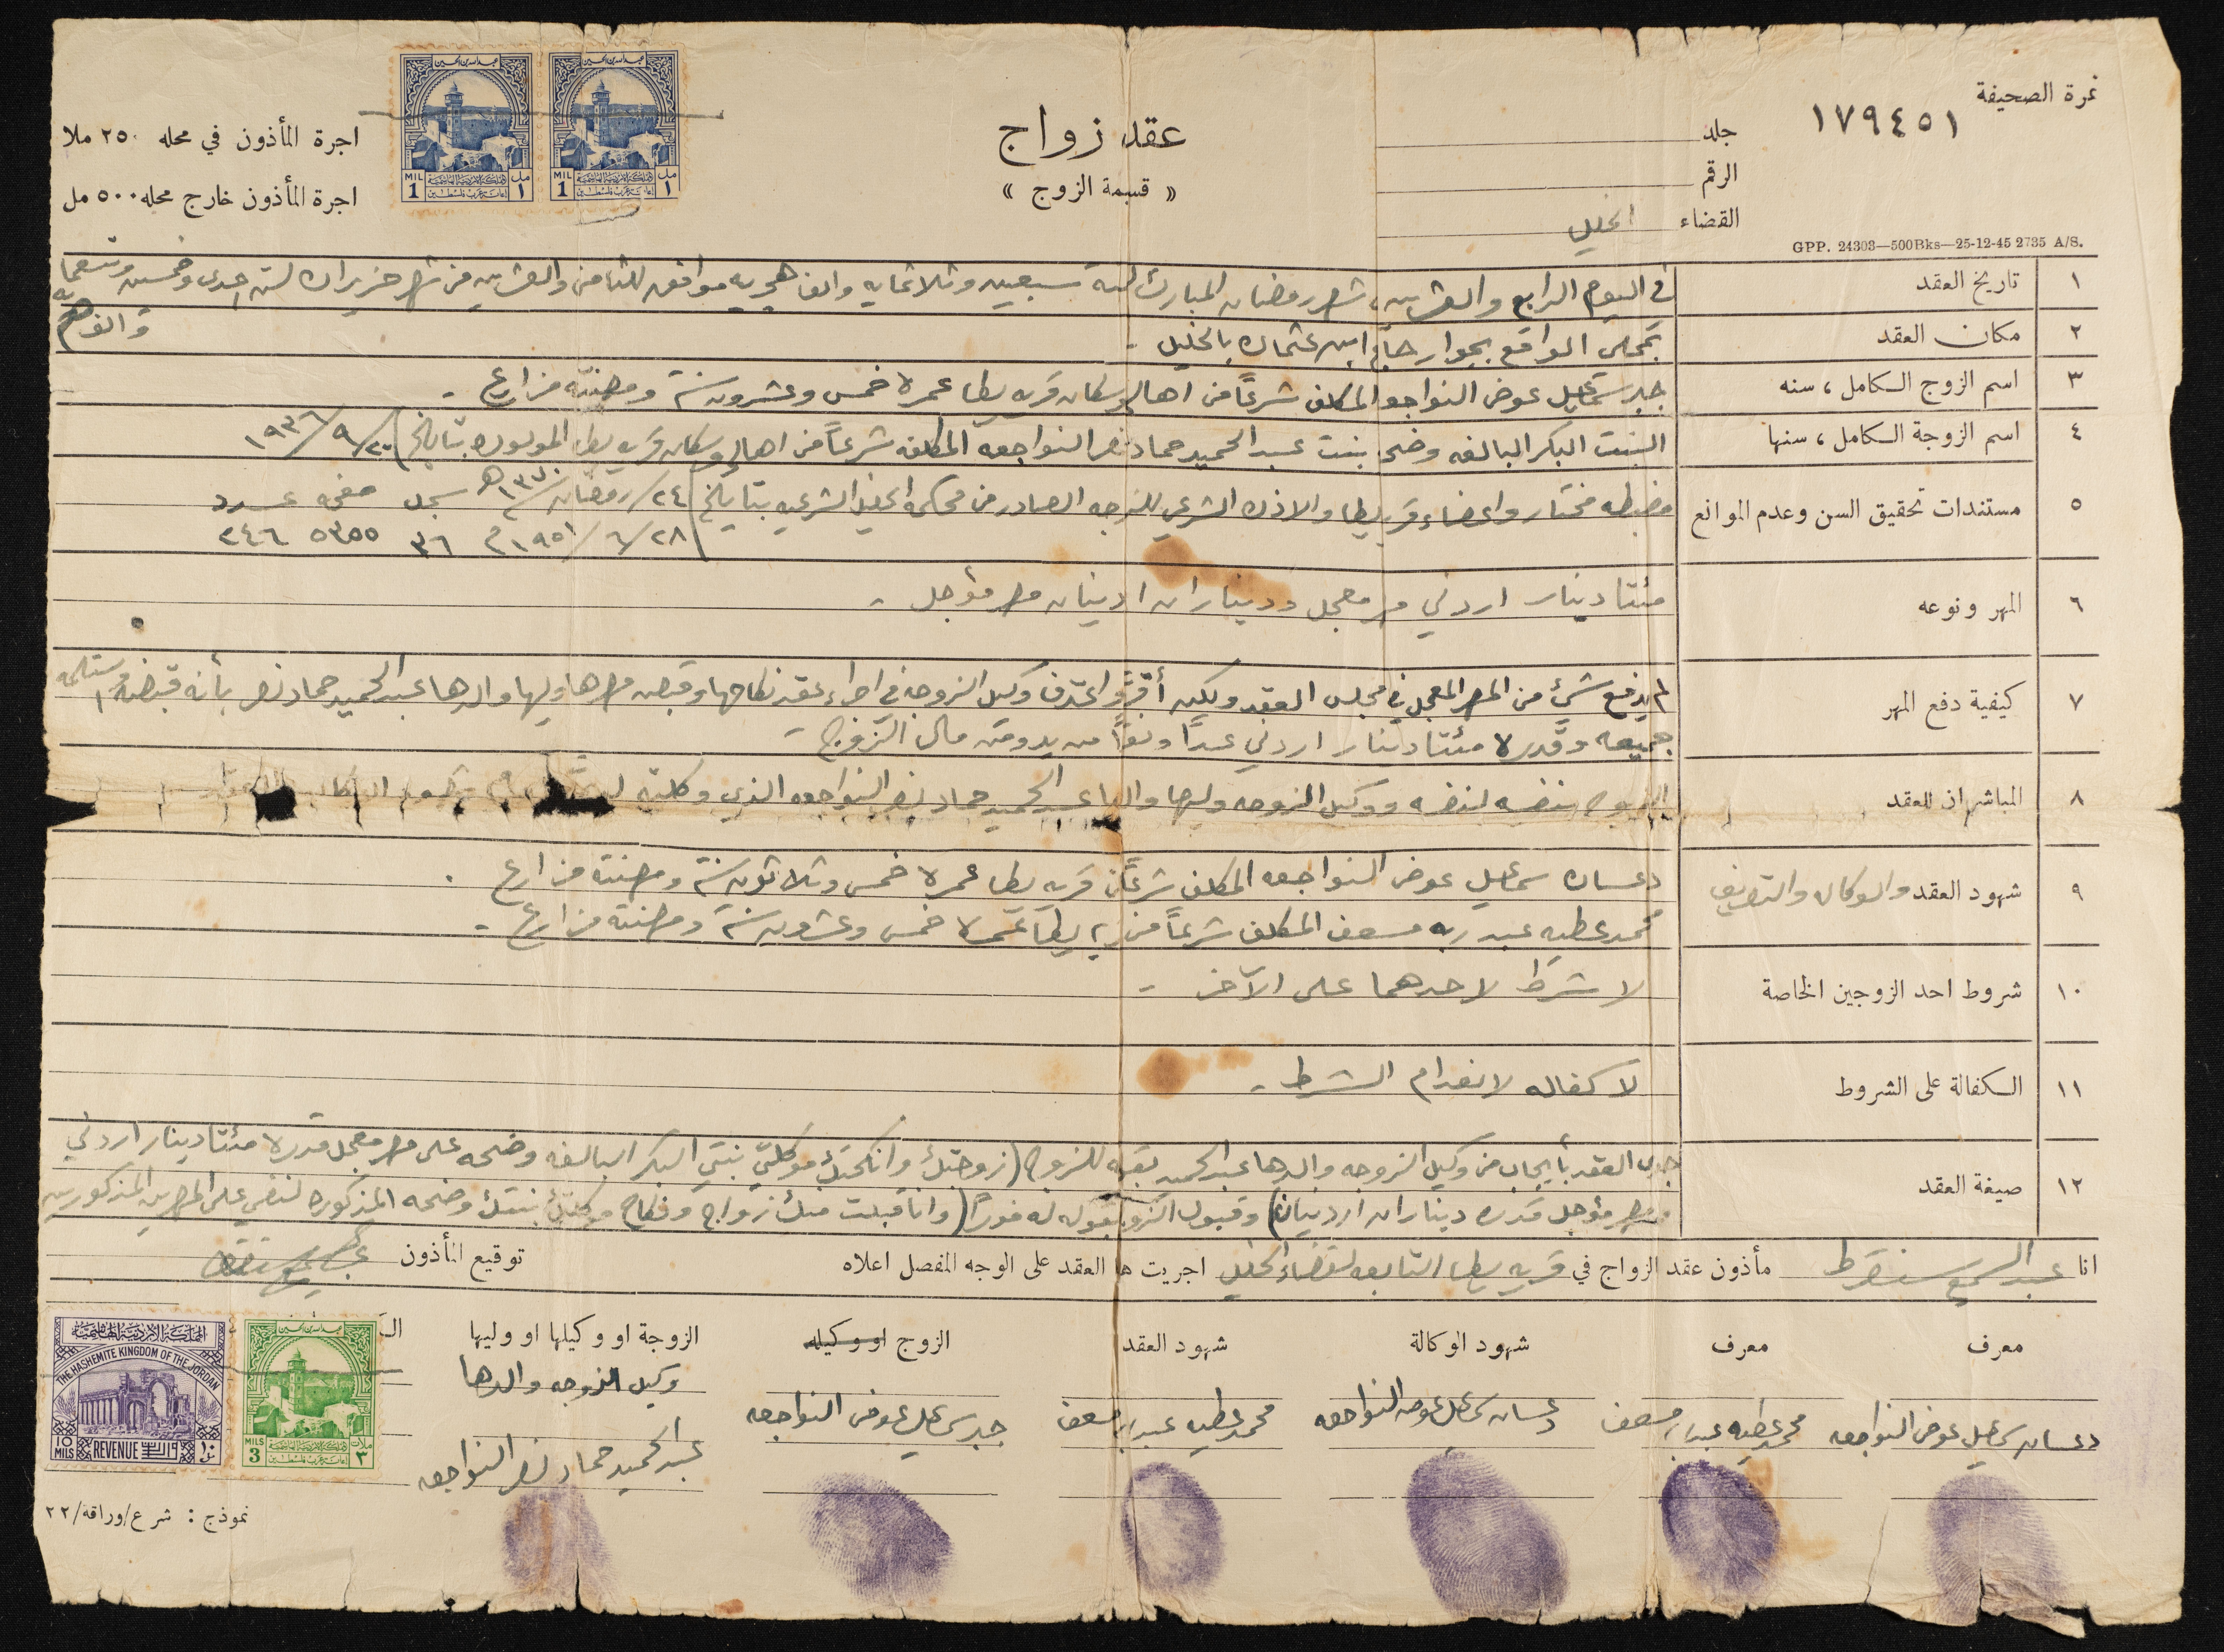 نمرة الصحيفة
١٧٩٤٥١
جلد
الرقم
القضاء الخليل
GPP. 24303—500Bks—25-12-45 2735 A/S.
عقد زواج
« قسيمة الزوج »
عبدالله بن الحسين
MIL 1 مل ١
عبدالله بن الحسين
MIL 1 مل ١
اجرة المأذون في محله ٢٥٠ ملا
اجرة المأذون خارج محله ٥٠٠ مل
١ تاريخ العقد
في اليوم الرابع والعشرين شهر رمضان المبارك لسنة سبعين وثلاثمايه والف هجريه موافق للثامن والعشرين من شهر حزيران لسنة احدى وخمسين وتسعمايه
والف م
٢ مكان العقد
بمحلي الواقع بجوار جامع ابن عثمان بالخليل -
٣ اسم الزوج الكامل ، سنه
جبر سماعيل عوض النواجعه المكلف شرعاً من اهالي وسكان قريه يطا عمره خمس وعشرون سنة ومهنته مزارع -
٤ اسم الزوجة الكامل ، سنها
البنت البكر البالغه وضحه بنت عبد الحميد حماد نصر النواجعه المكلفه شرعاً من اهالي وسكان قريه يطا المولوده بتاريخ ٢٠/٩/١٩٣٦
٥ مستندات تحقيق السن وعدم الموانع
مضبطه مختار واعضاء قريه يطا والاذن الشرعي للزوجه الصادر من محكمة الخليل الشرعيه بتاريخ ٢٤/رمضان/١٣٧٠هـ سجل صفحه عدد
٢٨/٦/١٩٥١م ٣٦ ٥٣٥٥ ٢٤٦
٦ المهر ونوعه
مئتا دينار اردني مهر معجل وديناران اردنيان مهر مؤجل -
٧ كيفية دفع المهر
لم يدفع شيء من المهر المعجل في مجلس العقد ولكن أقرّ واعترف وكيل الزوجه في اجراء عقد نكاحها وقبض مهرها وليها والدها عبد الحميد حماد نصر بأنه قبضه واستلمه
جميعه وقدره مئتا دينار اردني عداً ونقداً من يد ومن مال الزوج -
٨ المباشران للعقد
الزوج بنفسه لنفسه ووكيل الزوجه وليها والدها عبد الحميد حماد نصر النواجعه الذي وكلته
٩ شهود العقد والوكاله والتعريف
دعسان سماعيل عوض النواجعه المكلف شرعاً من قريه يطا عمره خمس وثلاثون سنة ومهنته مزارع .
محمد عطيه عبد ربه مسعف المكلف شرعاً من قريه يطا عمره خمس وعشرون سنة ومهنته مزارع -
١٠ شروط احد الزوجين الخاصة
لا شرط لاحدهما على الآخر -
١١ الكفالة على الشروط
لا كفاله لانعدام الشرط -
١٢ صيغة العقد
جرى العقد بأيجاب من وكيل الزوجه والدها عبد الحميد بقوله للزوج (زوجتك وانكحتك موكلتي بنتي البكر البالغه وضحه على مهر معجل قدره مئتا دينار اردني
ومهر مؤجل قدره ديناران اردنيان) وقبول الزوج بقوله له فوراً (وانا قبلت منك زواج ونكاح موكلتك بنتك وضحه المذكوره لنفسي على المهرين المذكورين
انا عبد السميع سنقرط مأذون عقد الزواج في قريه يطا التابعه لقضاء الخليل اجريت هذا العقد على الوجه المفصل اعلاه توقيع المأذون
معرف
معرف
شهود الوكالة
شهود العقد
الزوج او وكيله
الزوجة او وكيلها او وليها
وكيل الزوجه والدها
دعسان سماعيل عوض النواجعه
محمد عطيه عبد ربه مسعف
دعسان سماعيل عوض النواجعه
محمد عطيه عبد ربه مسعف
جبر سماعيل عوض النواجعه
عبد الحميد حماد نصر النواجعه
عبدالله بن الحسين
MILS 3 ملات ٣
المملكة الاردنية الهاشمية
THE HASHEMITE KINGDOM OF THE JORDAN
10 MILS REVENUE ١٠
نموذج : شرع/وراقة/٢٢